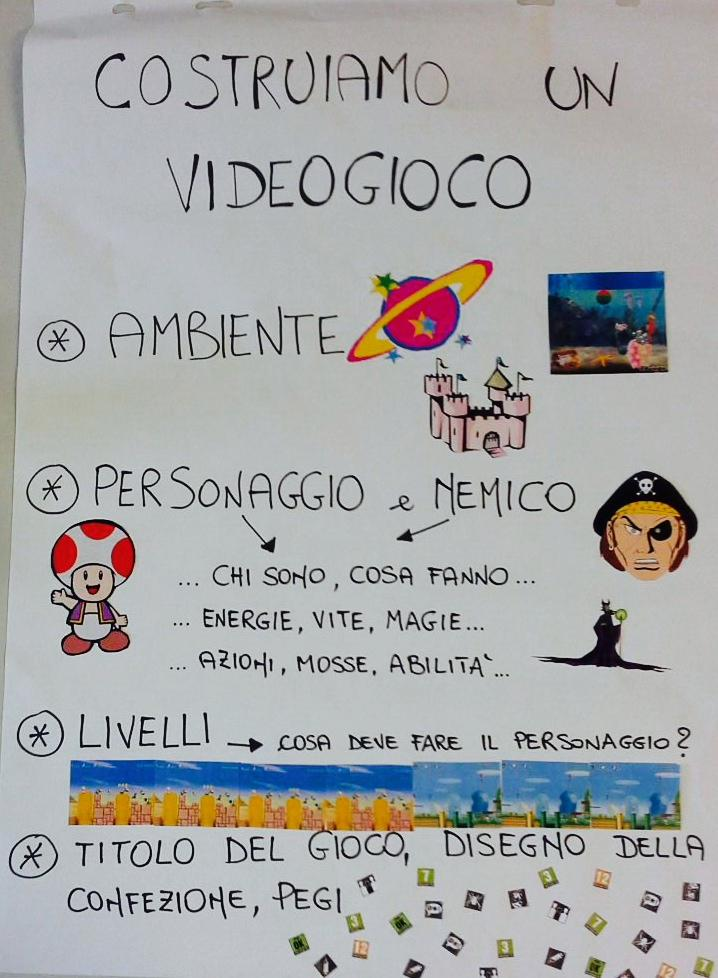 COSTRUIAMO UN
VIDEOGIOCO
* AMBIENTE
* PERSONAGGIO e NEMICO
... CHI SONO, COSA FANNO...
... ENERGIE, VITE, MAGIE...
... AZIONI, MOSSE, ABILITA'...
* LIVELLI → COSA DEVE FARE IL PERSONAGGIO?
* TITOLO DEL GIOCO, DISEGNO DELLA
CONFEZIONE, PEGI
7
3
12
3
OK
7
OK
12
3
12
7